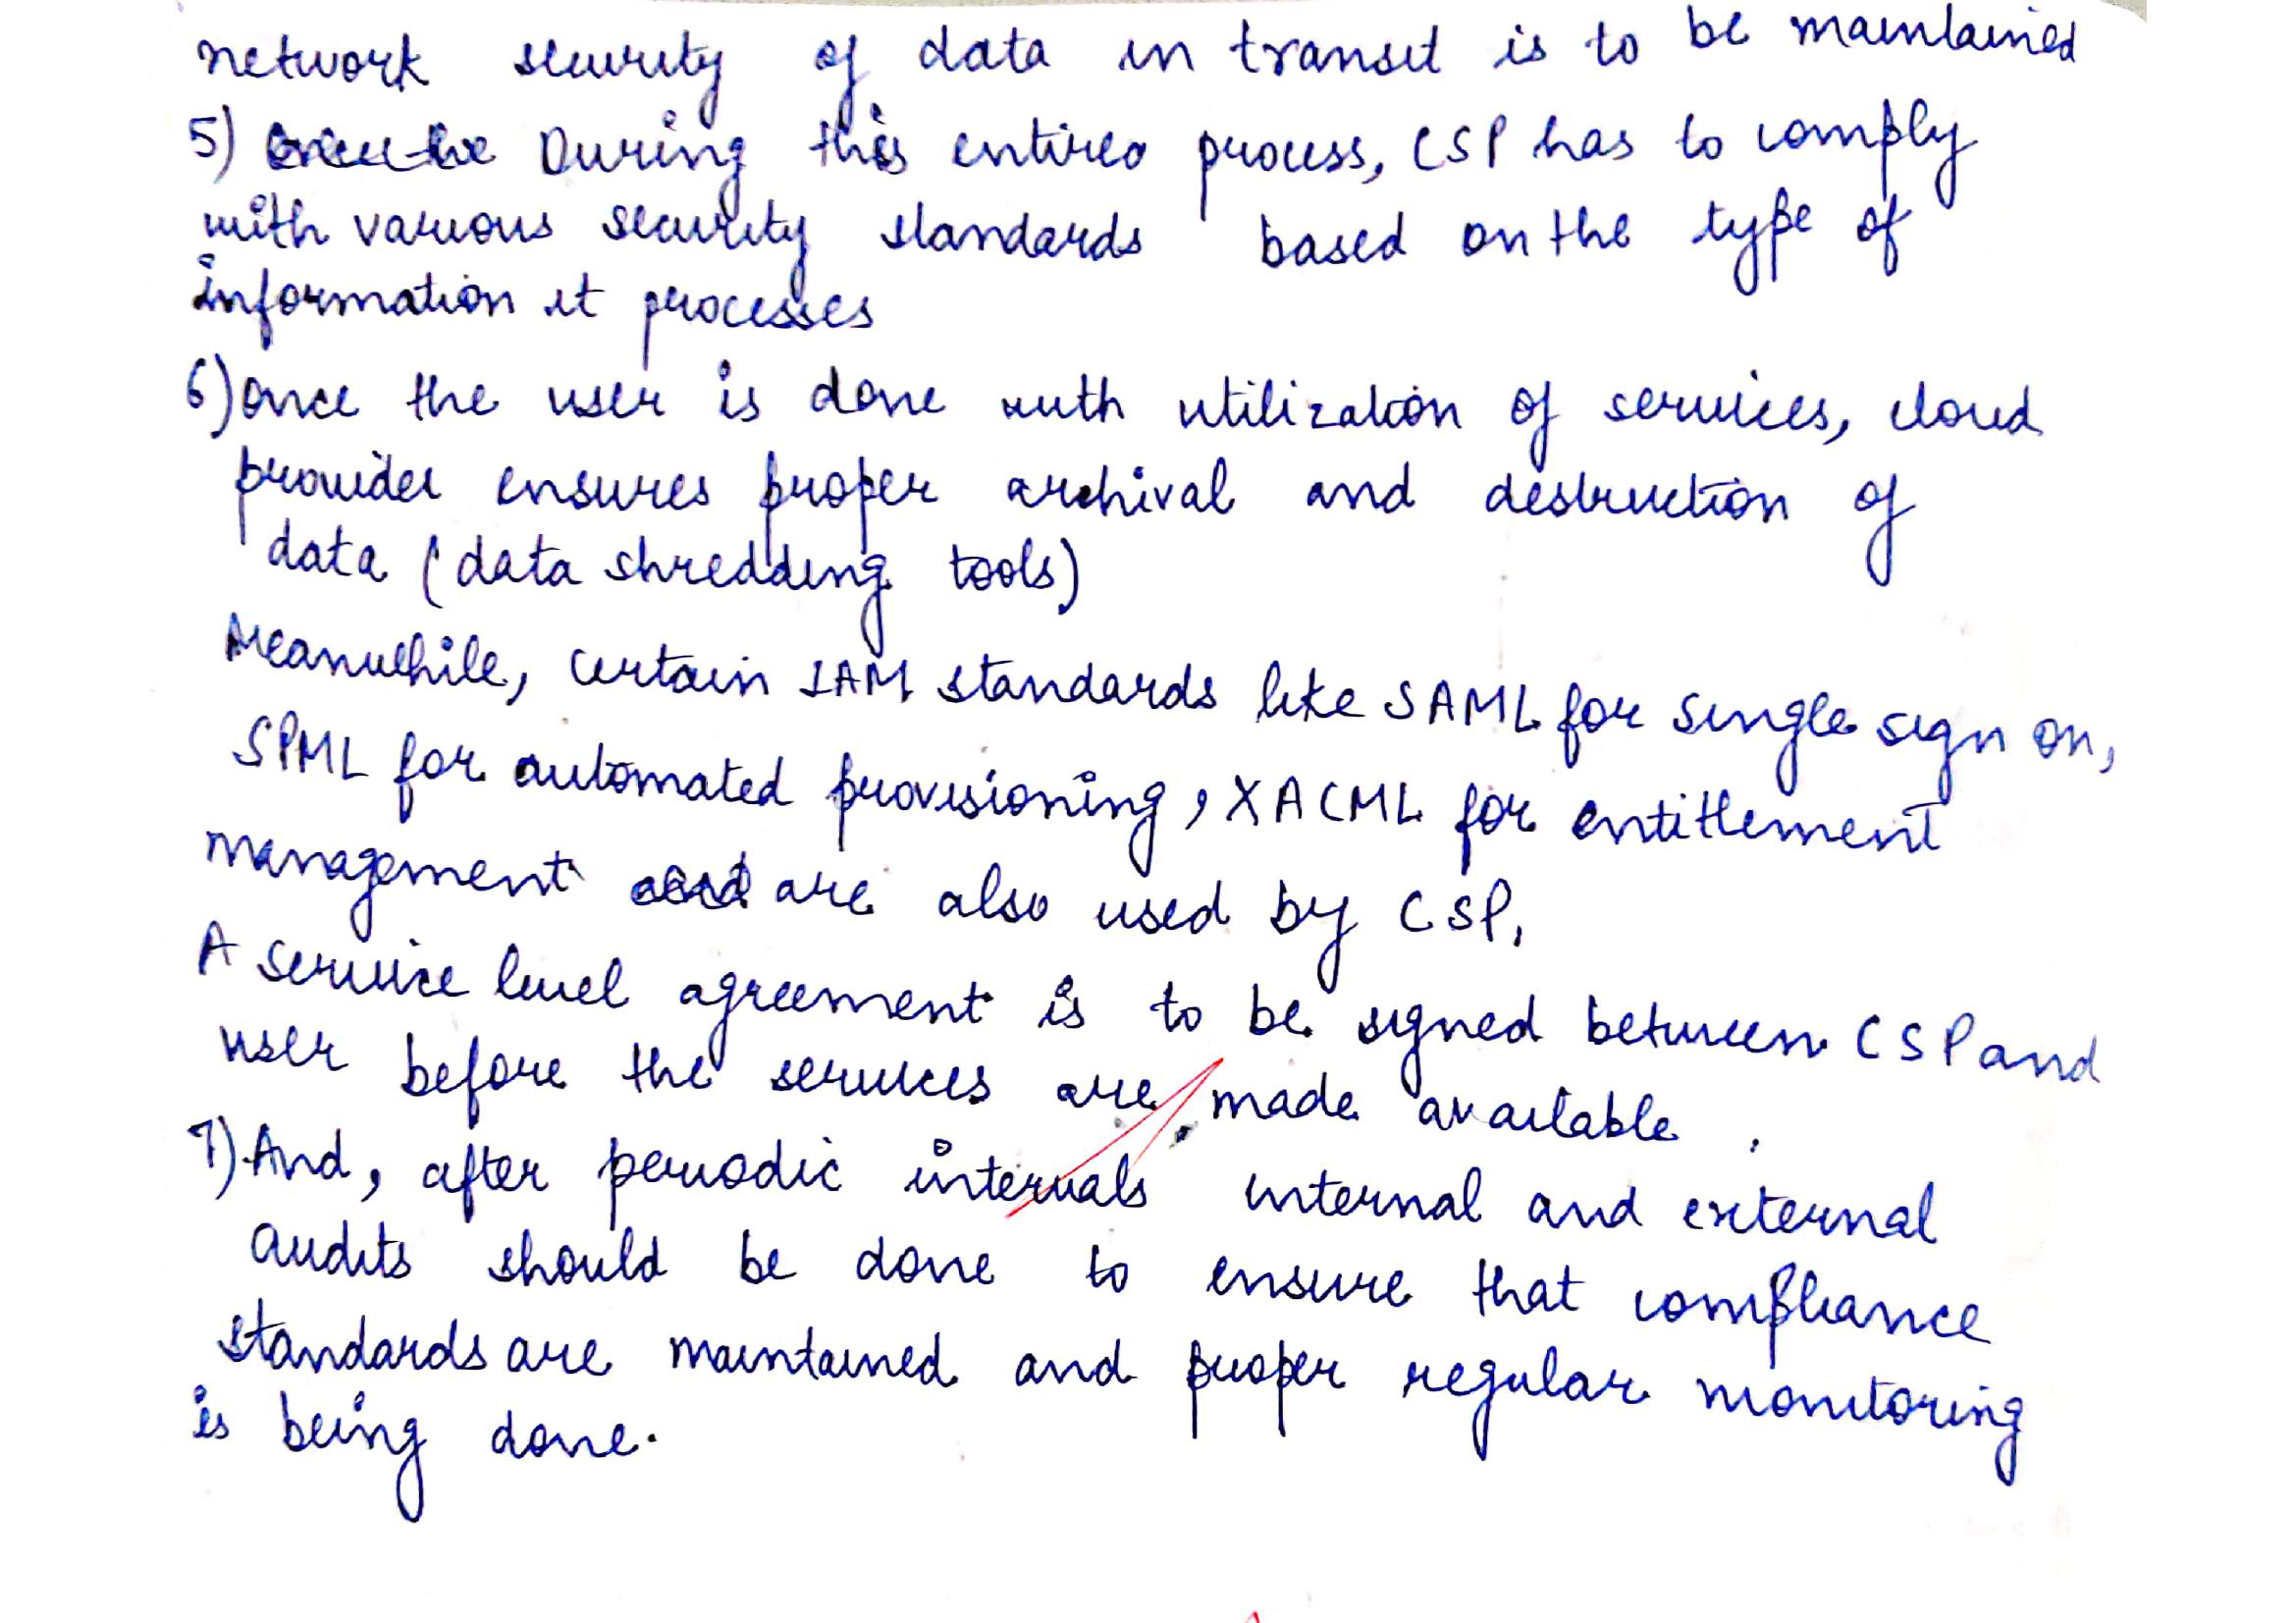 network security of data in transit is to be maintained
5) During this entire process, CSP has to comply
with various security standards based on the type of
information it processes
6) once the user is done with utilization of services, cloud
provider ensures proper archival and destruction of
data (data shredding tools)
Meanwhile, certain IAM standards like SAML for single sign on,
SPML for automated provisioning, XACML for entitlement
management are also used by CSP.
A service level agreement is to be signed between CSP and
user before the services are made available.
7) And, after periodic intervals internal and external
audits should be done to ensure that compliance
standards are maintained and proper regular monitoring
is being done.